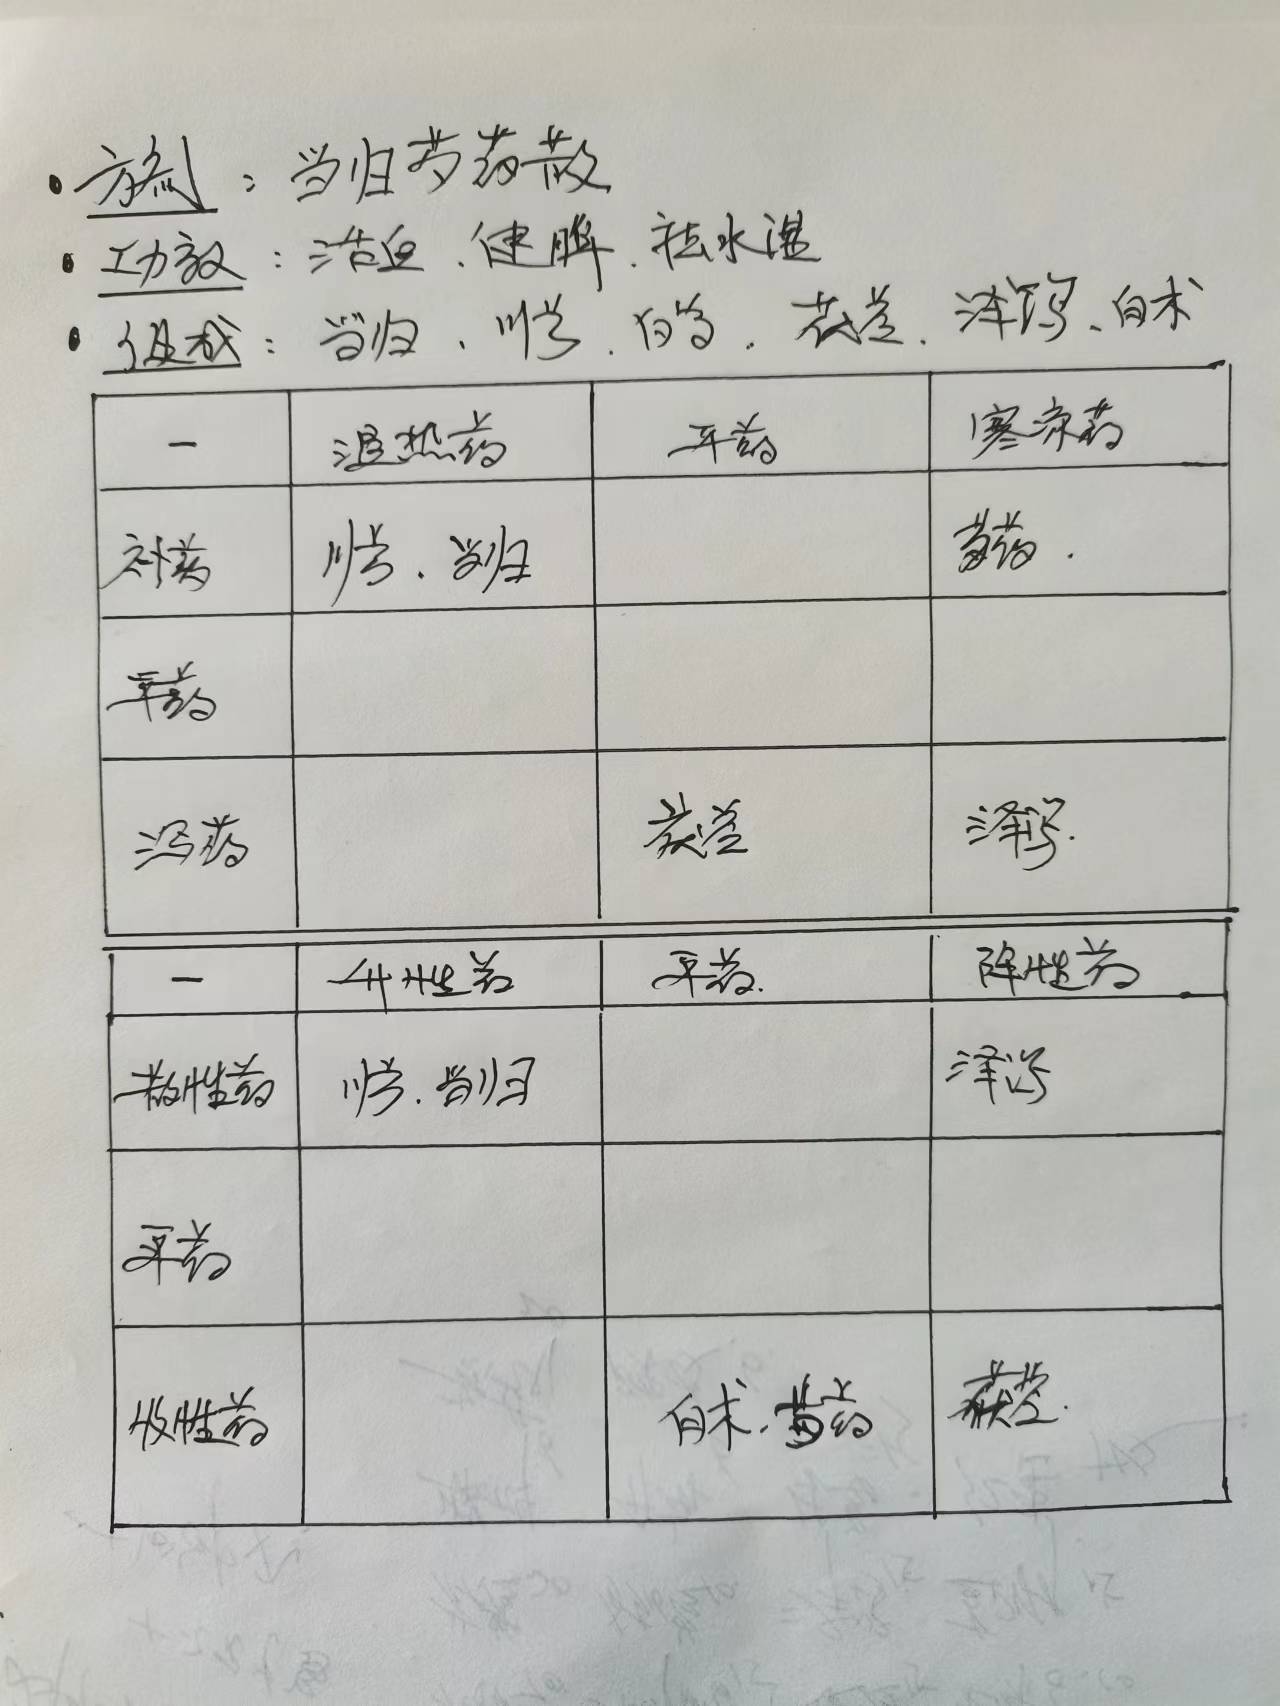 · 方剂：当归芍药散
· 功效：活血、健脾、祛水湿
· 组成：当归、川芎、白芍、茯苓、泽泻、白术
一 温热药 平药 寒凉药
补药 川芎、当归 芍药.
平药
泻药 茯苓 泽泻.
一 升性药 平药. 降性药
散性药 川芎、当归 泽泻
平药
收性药 白术、芍药 茯苓.